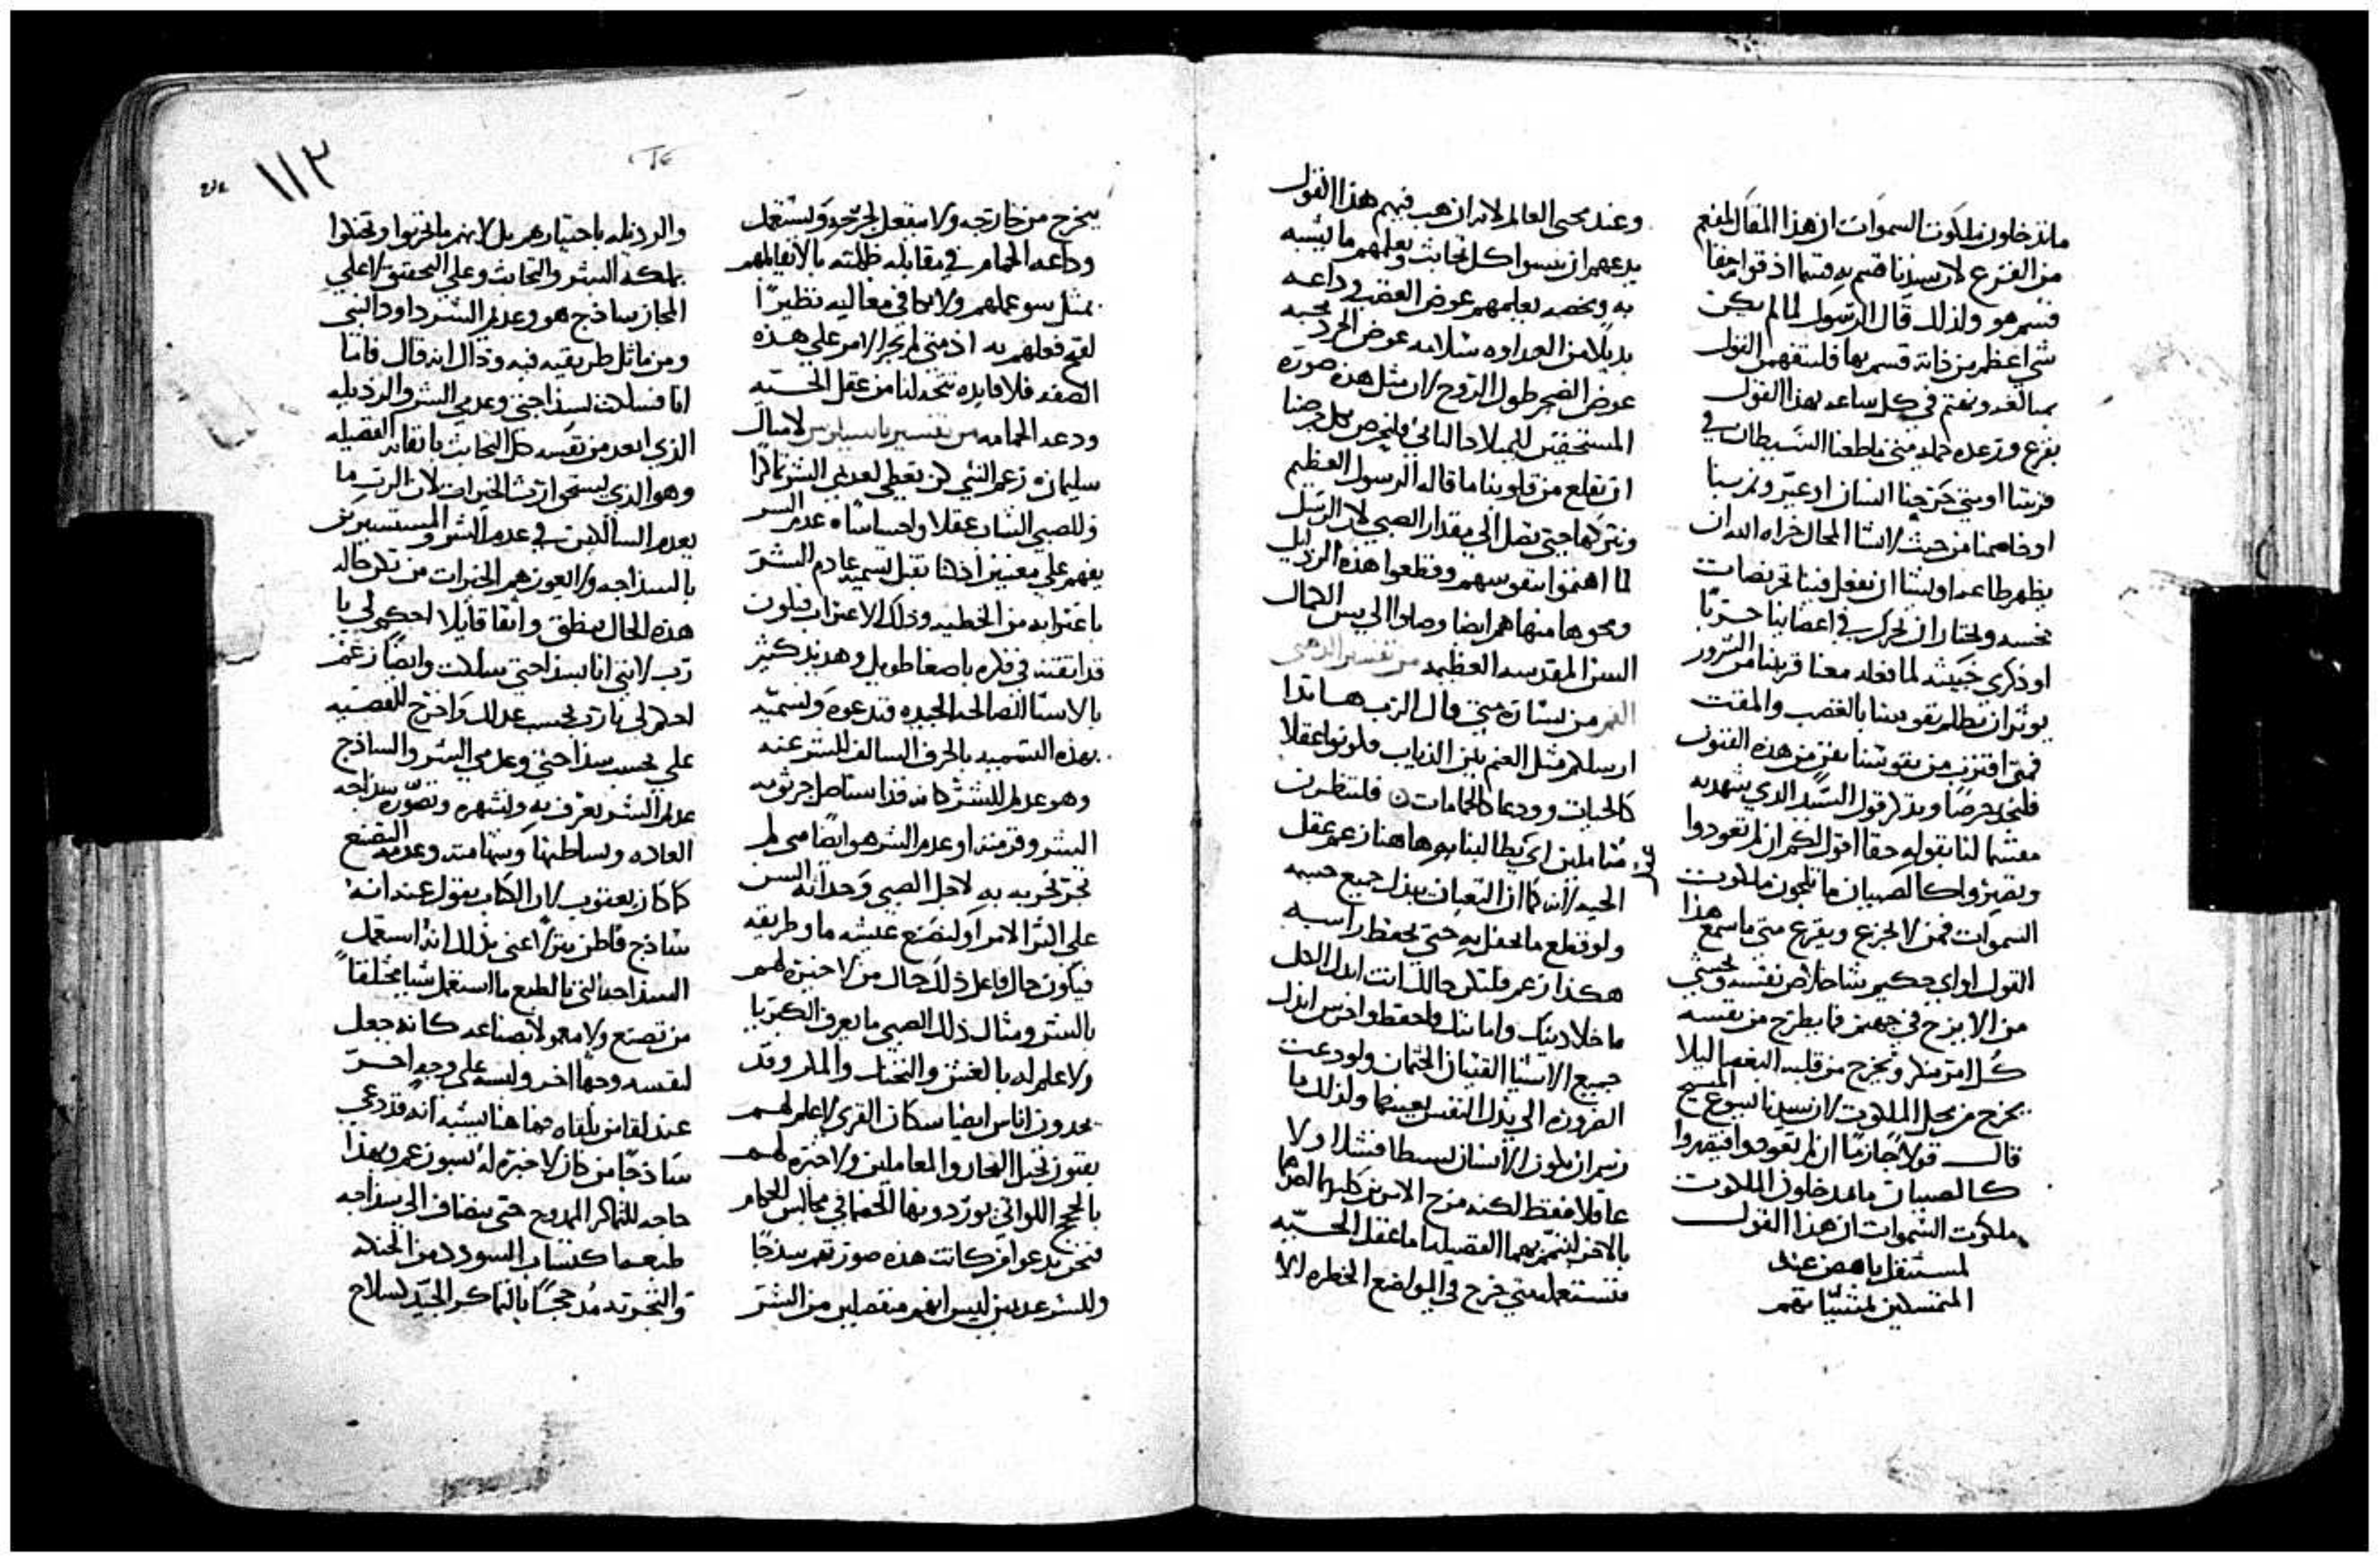 ماتدخلون ملكوت السموات ان هذا المقال لمفعم
من الفزع لان سيدنا قسم به قسما اذ قوله حقا
قسم هو ولذلك قال الرسول لما لم يكن
شي اعظم من ذاته قسم بها فلنتفهم القول
بمبالغه ونهتم في كل ساعه بهذا القول
بفزع ورعده حتي متي ماطعنا الشيطان في
او خاصمنا من حيث لانشا المحال خراه الله ان
او ذكري خبيثه لما فعله معنا قريبنا من الشرور
يوثر ان تظلم نفوسنا بالغضب والمقت
فمتي اقترب من نفوسنا فن من هذه الفنون
قول السيد الذي يتهدد به
لنا بقوله حقا اقول لكم ان لم تعودوا
وتصيروا كالصبيان ماتلجون ملكوت
السموات فمن لا يجزع ويفزع متي ماسمع هذا
القول او اي حكيم شا خلاص نفسه وخشي
من الا يزج في جهنم فما يطرح من نفسه
كل امر منكر ويخرج من قلبه البغضا ليلا
يخرج من محل الملكوت لان سيدنا يسوع المسيح
قال قولا جازما ان لم تعودوا فتصيروا
كالصبيان ماتدخلون الملكوت
ملكوت السموات ان هذا القول
لمستثقل باهض عند
وعند محبي العالم لانه ان هب فيهم هذا القول
يدعهم ان ينسوا كل تخابث ويعلمهم مايشبه
به ويخصه يعلمهم عوض الغضب وداعه
بديلا من العداوه سلامه عوض الحرد محبه
عوض الضجر طول الروح لان مثل هذه صوره
المستحقين للميلاد الثاني فليحرص كل منا
ان يقلع من قلوبنا ما قاله الرسول العظيم
ونتركها حتي نصل الي مقدار الصبي لان الرسل
لما اهتموا بنفوسهم وقطعوا هذه الرذايل
ومحوها منها هم ايضا وصلوا الي يبس الكمال
السن المقدسه العظيمه من تفسير الذهبي
الفم من بشارة متي قال الرب هانذا
ارسلكم مثل الغنم بين الذياب فكونوا عقلا
كالحيات وودعا كالحمامات فلننظرن
متاملين اي عقل يطالبنا به هاهنا زعم عقل
الحيه لانه كما ان الثعبان يبذل جميع جسمه
ولو قطع مايحفل به حتي يحفظ راسه
هكذا زعم فلتكن حالك انت ابذل الكل
ماخلا دينك وامانتك فاحفظ واحرس ابذل
جميع الاشيا القنيان الجثمان ولو دعت
الضروره الي بذل النفس بعينها ولذلك ما
رسم ان يكون الانسان بسيطا فشلا ولا
عاقلا فقط لكنه مزج الامرين كليهما
بالاخر ليتم بهما الفضيله اما عقل الحيه
فتستعمله متي خرج في المواضع الخطره لالا
١١٣
يخرج من خارجه ولا ينفعل لجرحه وتستعمل
وداعه الحمام في مقابله ظلمته بالا تقابلهم
بمثل سو عملهم ولا تكافي مغاليه نظيرا
لقبح فعلهم به اذ متي لم يجر الامر علي هذه
الصفه فلا فايده تتخذ لنا من عقل الحيه
ودعه الحمامه من تفسير باسيليوس لامثال
سليمان زعم النبي كي تعطي لعديمي الشر مكرا
وللصبي الشاب عقلا واحساسا عدم الشر
يفهم علي معنيين اذ اننا نقبل تسميه عادم الشر
باغترابه من الخطيه وذلك الاغتراب فيكون
قد اتقنته في فكره باصغا طويل وهذيذ كثير
بالاشيا الصالحه الجيده فتدعوه وتسميه
بهذه التسميه بالحرف السالف للشر عنه
وهو عديم للشر كانه قد استاصل جرثومه
الشر وقرمته او عدم الشر هو ايضا متي لم
تجر تجربه به لاجل الصبي وحداثه السن
علي اكثر الامر او لتصنع عيشه ما وطريقه
فيكون حال فاعل ذلك حال من لا خبره لهم
بالشر ومثال ذلك الصبي مايعرف الكبريا
ولا علم له بالغش والتخبث والمكر وقد
يجدون اناس ايضا سكان القري لا علم لهم
بفنون تخيل التجار والمعاملين ولا خبره لهم
بالحجج اللواتي يوردونها الخصما في مجالس الحكام
فنحن ندعو اذ كانت هذه صورتهم سذجا
وللشر عديمين ليس انهم منفصلين من الشر
والرذيله باختيارهم بل لانهم ماتخربوا وتخلوا
بملكه الشر والتخابث وعلي التحقيق لا علي
المجاز ساذج هو وعديم الشر داود النبي
ومن ماثل طريقته فيه وذاك انه قال فاما
انا فسلكت بسذاجتي وعدمي الشر والرذيله
الذي ابعد من نفسه كل التخابث باتقانه الفضيله
وهو الذي يستحق ارث الخيرات لان الرب ما
يعدم السالكين في عدم الشر والمستسيرين
بالسذاجه ولا يعوزهم الخيرات من تكن حاله
هذه الحال ينطق واثقا قايلا احكم لي يا
رب لانني انا بسذاجتي سلكت وايضا زعم
احكم لي يارب بحسب عدلك واخرج القضيه
علي بحسب سذاجتي وعدمي الشر والساذج
عديم الشر يعرف به ويشهره وتصوره سذاجه
العاده وبساطتها وشهامته وعدمه التصنع
كما كان يعقوب لان الكتاب يقول عنه انه
ساذج قاطن بيتا اعني بذلك انه استعمل
السذاجه التي بالطبع ما استعمل شيا مختلقا
من تصنع ولا معمولا بصناعه كانه جعل
لنفسه وجها اخر ولبسه علي وجه اخر
عند لقا من يلقاه فما هنا يشبه انه قد دعي
ساذجا من كان لا خبره له بسو زعم وبهذا
حاجه للمكر الممدوح حتي ينضاف الي سذاجه
طبعها كتساب السودد من الحنكه
والتجربه مدججا بالمكر الجيد كسلاح